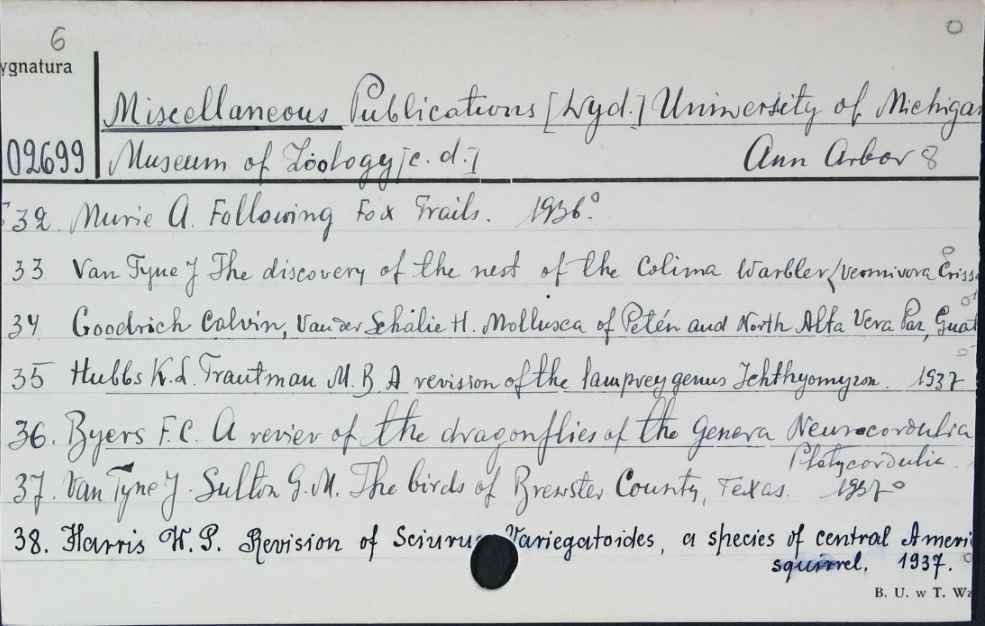 6 0
ygnatura
Miscellaneous Publications [Wyd.] University of Michigan
02699 Museum of Zoology [c. d.] Ann Arbor 8
32. Murie A. Following Fox Trails. 1936.
33 Van Tyne J The discovery of the nest of the Colima Warbler (vermivora Criss
34 Goodrich Calvin, Van der Schalie H. Mollusca of Petén and North Alta Vera Paz, Guat
35 Hubbs K.L. Trautman M.B. A revision of the lamprey genus Ichthyomyzon. 1937
36. Byers F.C. A revier of the dragonflies of the Genera Neurocordulia
Platycordulia.
37. Van Tyne J. Sutton G.M. The birds of Brewster County, Texas. 1937
38. Harris W.P. Revision of Sciurus Variegatoides, a species of central Ameri
squirrel, 1937.
B. U. w T. Wz